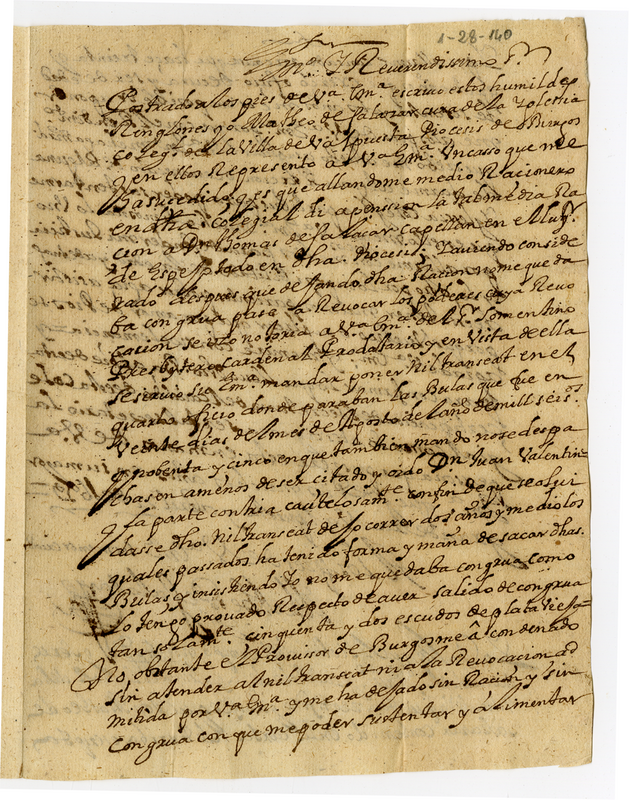 1-28-140
Ill.mo Y Reverendissimo S.r
Postrado a los pies de V.a Ill.ma escrivo estos humildes
Renglones yo Matheo de Salazar cura de la Yglesia
coleg.l de la Villa de Valpuesta Diocesis de Burgos
y en ellos Represento a V.a Ill.ma Un casso que me
ha sucedido, y es que allandome medio Racionero
en dha colegial di a penssion la tal media Ra
cion a Dn Thomas de Salazar capellan en el lug.r
de Espejo, todo en dha Diocesis, Y aviendo conside
rado despues que dejando dha Racion no me queda
ba congrua passe a Revocar los poderes cuya Revo
cacion se izo notoria a V.a Ill.ma del S.r
Presbytero cardenal Prodatario, y en Vista de ella
se sirvio su Ill.ma mandar poner Nil transeat en el
quarto oficio donde paraban las Bulas que fue en
Veinte dias del mes de Agosto de el año de mill seis.os
y nobenta y cinco en que tambien mando no se despa
chasen a menos de ser citado y oido Dn Juan Valentin
y la parte contraria cautelosam.te con fin de que se olvi
dasse dho. Nil transeat dejo correr dos años y medio los
quales passados ha tenido forma y maña de sacar dhas.
Bulas y insistiendo Yo no me quedaba congrua como
lo tengo provado Respecto de aver salido de congrua
tan solam.te cinquenta y dos escudos de plata
No, obstante el Provisor de Burgos me â condenado
sin atender al nil transeat ni a la Revocacion ad
mitida por V.a Ill.ma y me ha dejado sin Racion y sin
congrua con que me poder sustentar y alimentar